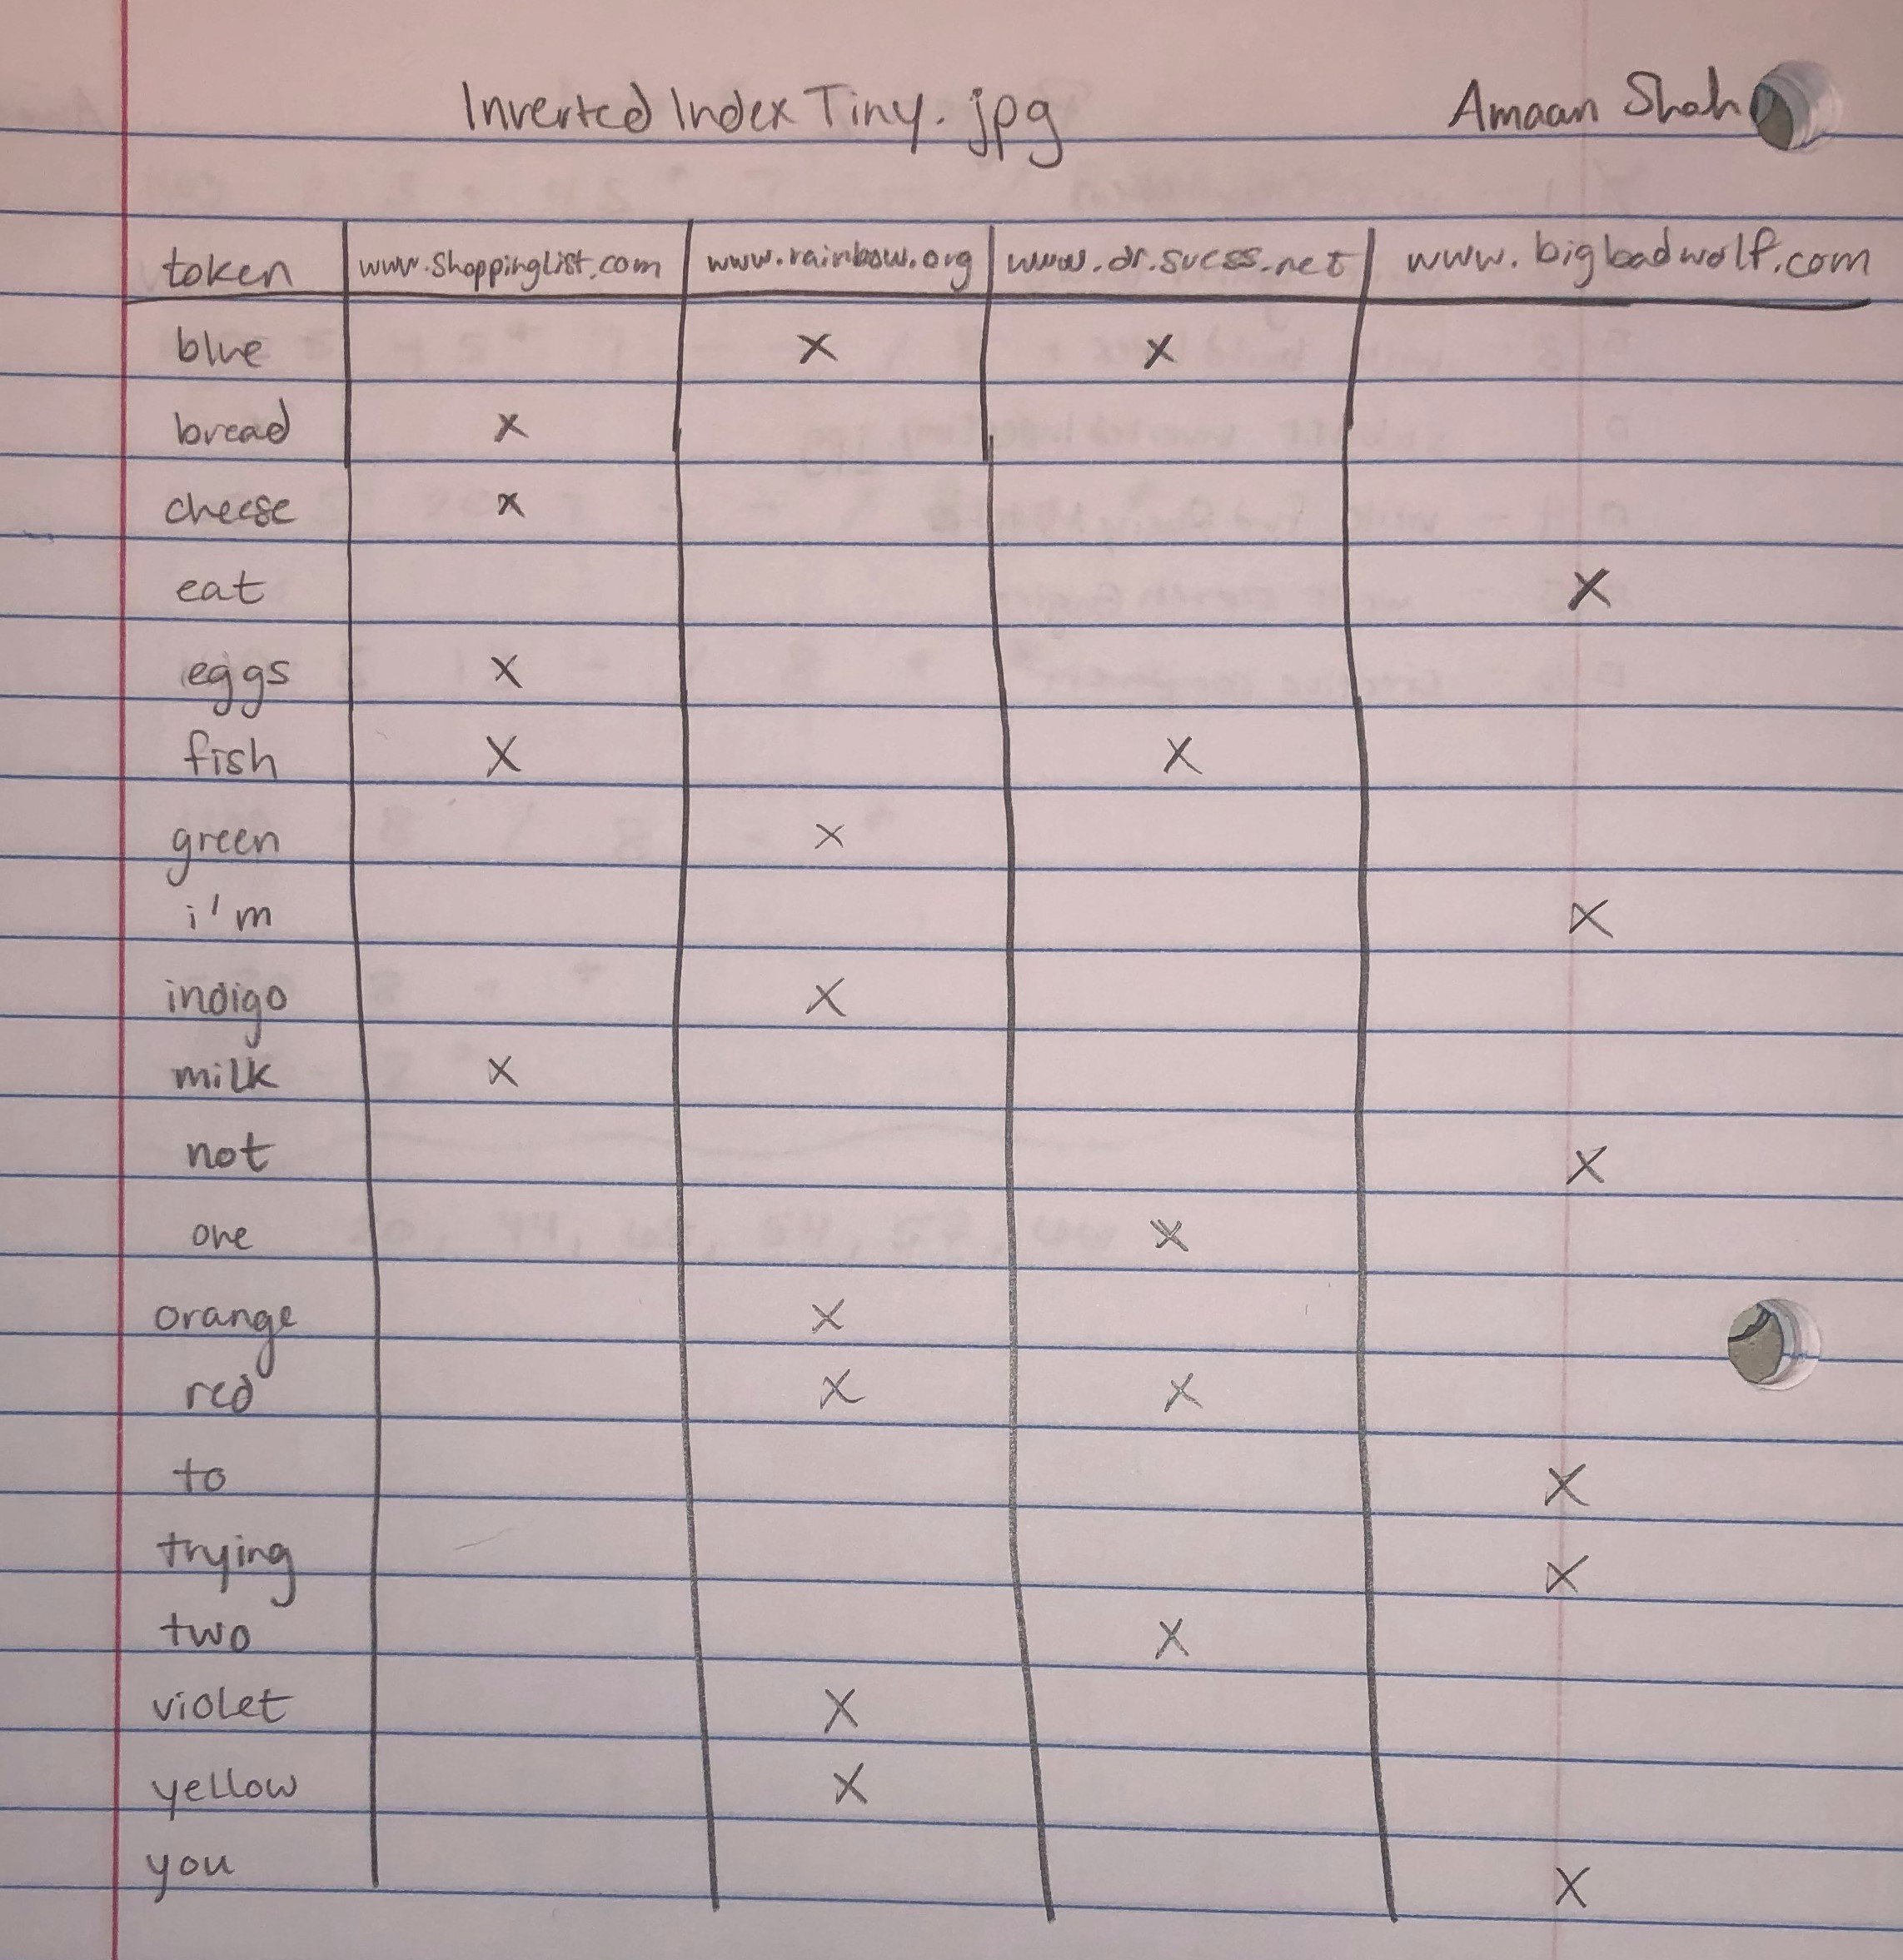 Inverted Index Tiny.jpg Amaan Shah
token www.shoppinglist.com www.rainbow.org www.dr.suess.net www.bigbadwolf.com
blue x x
bread x
cheese x
eat x
eggs x
fish x x
green x
i'm x
indigo x
milk x
not x
one x
orange x
red x x
to x
trying x
two x
violet x
yellow x
you x